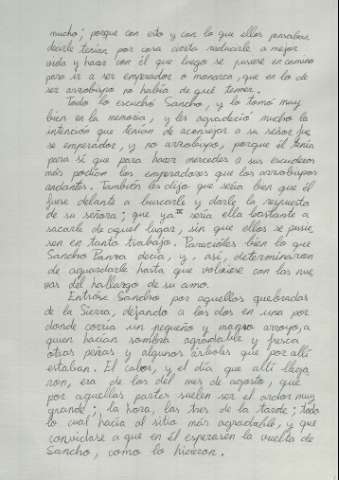 mucho; porque con esto y con lo que ellos pensaban
decirle tenían por cosa cierta reducirle a mejor
vida y hacer con él que luego se pusiese en camino
para ir a ser emperador o monarca, que en lo de
ser arzobispo no había de qué temer.
Todo lo escuchó Sancho, y lo tomó muy
bien en la memoria, y les agradeció mucho la
intención que tenían de aconsejar a su señor fue
se emperador, y no arzobispo, porque él tenía
para sí que para hacer mercedes a sus escuderos
más podían los emperadores que los arzobispos
andantes. También les dijo que sería bien que él
fuese delante a buscarle y darle la respuesta
de su señora; que ya sería ella bastante a
sacarle de aquel lugar, sin que ellos se pusie
sen en tanto trabajo. Parecióles bien lo que
Sancho Panza decía, y, así, determinaron
de aguardarle hasta que volviese con las nue
vas del hallazgo de su amo.
Entróse Sancho por aquellas quebradas
de la Sierra, dejando a los dos en una por
donde corría un pequeño y manso arroyo, a
quien hacían sombra agradable y fresca
otras peñas y algunos árboles que por allí
estaban. El calor, y el día que allí llega
ron, era de los del mes de agosto, que
por aquellas partes suelen ser el ardor muy
grande; la hora, las tres de la tarde; todo
lo cual hacía al sitio más agradable, y que
convidase a que en él esperasen la vuelta de
Sancho, como lo hicieron.